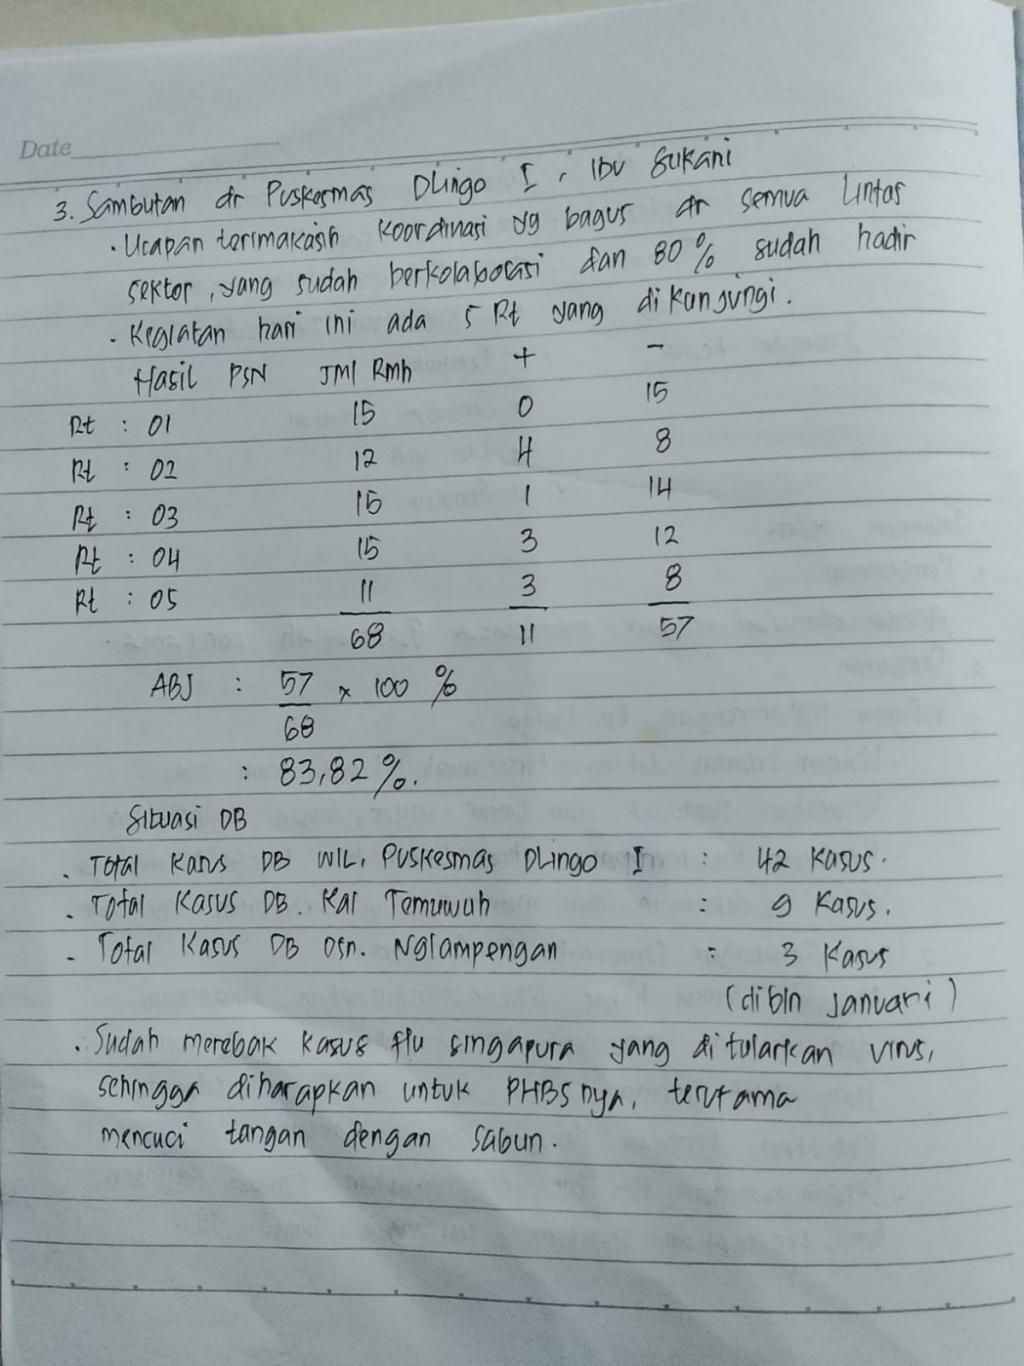 Date
3. Sambutan dr Puskesmas Dlingo I, Ibu Sukani
• Ucapan terimakasih koordinasi yg bagus dr semua lintas
sektor, yang sudah berkolaborasi dan 80% sudah hadir
• Kegiatan hari ini ada 5 Rt yang dikunjungi.
Hasil PSN JMl Rmh + -
Rt : 01 15 0 15
Rt : 02 12 4 8
Rt : 03 15 1 14
Rt : 04 15 3 12
Rt : 05 11 3 8
68 11 57
ABJ : 57 x 100 %
68
: 83,82%.
Situasi DB
• Total Kasus DB WIL. Puskesmas Dlingo I : 42 Kasus.
• Total Kasus DB. Kal Temuwuh : 9 Kasus.
- Total Kasus DB Dsn. Nglampengan : 3 Kasus
(dibln Januari)
• Sudah merebak kasus flu singapura yang ditularkan virus,
sehingga diharapkan untuk PHBSnya, terutama
mencuci tangan dengan sabun.